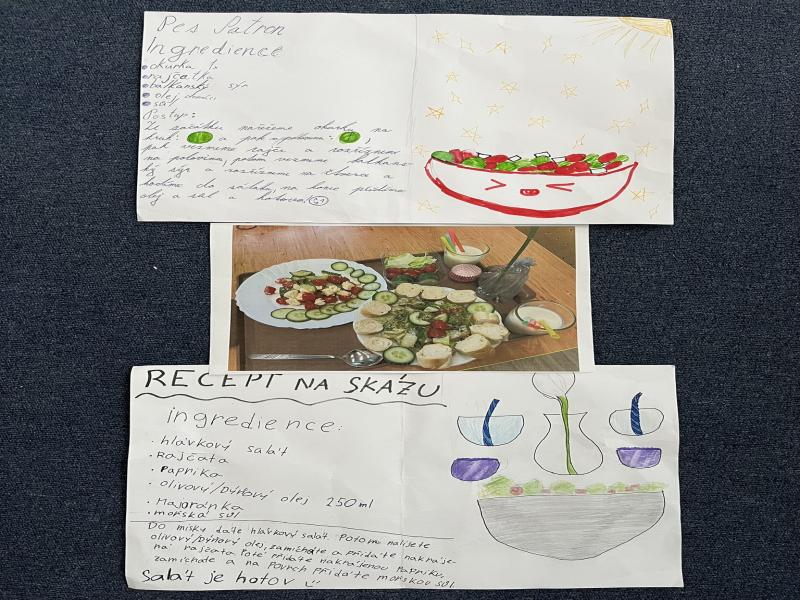 Pes Patron
Ingredience
okurka 1x
rajčátka
balkánský sýr
olej
sůl
Postup:
Ze začátku nařežeme okurku na
a pak
pak vezmeme rajče a rozřízneme
na polovinu, potom vezmeme balkáns-
ký sýr a rozřízneme na čtverce a
hodíme do salátu, na konec přidáme
olej a sůl a hotovo!
RECEPT NA SKÁZU
ingredience:
hlávkový salát
Rajčata
Paprika
olivový/Dýňový olej 250ml
Majoránka
mořská sůl
Do misky dáte hlávkový salát. Potom nalijete
olivový/Dýňový olej, zamícháte a přidáte nakráje-
ná rajčata Poté přidáte nakrájenou Papriku,
zamícháte a na povrch přidáte mořskou sůl.
Salát je hotov